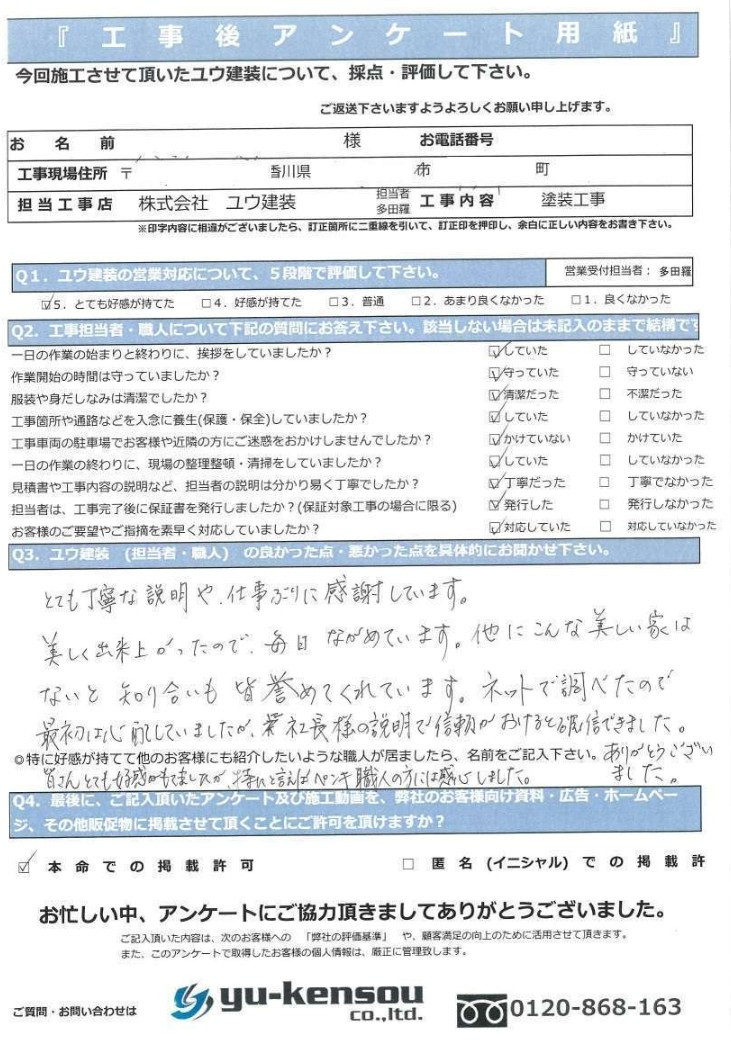 『工事後アンケート用紙』
今回施工させて頂いたユウ建装について、採点・評価して下さい。
ご返送下さいますようよろしくお願い申し上げます。
お名前 様 お電話番号
工事現場住所 〒 香川県 市 町
担当工事店 株式会社 ユウ建装 担当者 多田羅 工事内容 塗装工事
※印字内容に相違がございましたら、訂正箇所に二重線を引いて、訂正印を押印し、余白に正しい内容をお書き下さい。
Q1．ユウ建装の営業対応について、5段階で評価して下さい。 営業受付担当者：多田羅
☑5．とても好感が持てた □4．好感が持てた □3．普通 □2．あまり良くなかった □1．良くなかった
Q2．工事担当者・職人について下記の質問にお答え下さい。該当しない場合は未記入のままで結構です
一日の作業の始まりと終わりに、挨拶をしていましたか？ ☑していた □ していなかった
作業開始の時間は守っていましたか？ ☑守っていた □ 守っていない
服装や身だしなみは清潔でしたか？ ☑清潔だった □ 不潔だった
工事箇所や通路などを入念に養生(保護・保全)していましたか？ ☑していた □ していなかった
工事車両の駐車場でお客様や近隣の方にご迷惑をおかけしませんでしたか？ ☑かけていない □ かけていた
一日の作業の終わりに、現場の整理整頓・清掃をしていましたか？ ☑していた □ していなかった
見積書や工事内容の説明など、担当者の説明は分かり易く丁寧でしたか？ ☑丁寧だった □ 丁寧でなかった
担当者は、工事完了後に保証書を発行しましたか？(保証対象工事の場合に限る) ☑発行した □ 発行しなかった
お客様のご要望やご指摘を素早く対応していましたか？ ☑対応していた □ 対応していなかった
Q3．ユウ建装 (担当者・職人) の良かった点・悪かった点を具体的にお聞かせ下さい。
とても丁寧な説明や、仕事ぶりに感謝しています。
美しく出来上がったので、毎日ながめています。他にこんな美しい家は
ないと知り合いも皆誉めてくれています。ネットで調べたので
最初は心配していましたが、社長様の説明で信頼がおけると確信できました。
◎特に好感が持てて他のお客様にも紹介したいような職人が居ましたら、名前をご記入下さい。
ありがとうござい
ました。
皆さんとても好感がもてましたが、特にと言えばペンキ職人の方には感心しました。
Q4．最後に、ご記入頂いたアンケート及び施工動画を、弊社のお客様向け資料・広告・ホームペー
ジ、その他販促物に掲載させて頂くことにご許可を頂けますか？
☑ 本命での掲載許可 □ 匿名(イニシャル)での掲載許
お忙しい中、アンケートにご協力頂きましてありがとうございました。
ご記入頂いた内容は、次のお客様への 「弊社の評価基準」 や、顧客満足の向上のために活用させて頂きます。
また、このアンケートで取得したお客様の個人情報は、厳正に管理致します。
ご質問・お問い合わせは yu-kensou co.,ltd. 0120-868-163